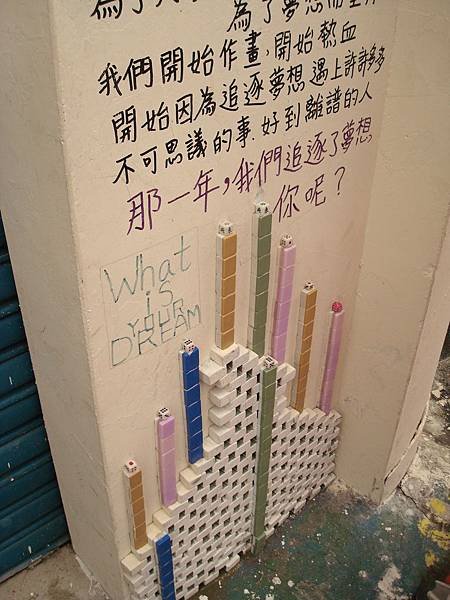 為了夢想而
我們開始作畫,開始熱血
開始因為追逐夢想遇上許許多多
不可思議的事.好到離譜的人
那一年,我們追逐了夢想
你呢?
What
iS
YOUR
DREAM